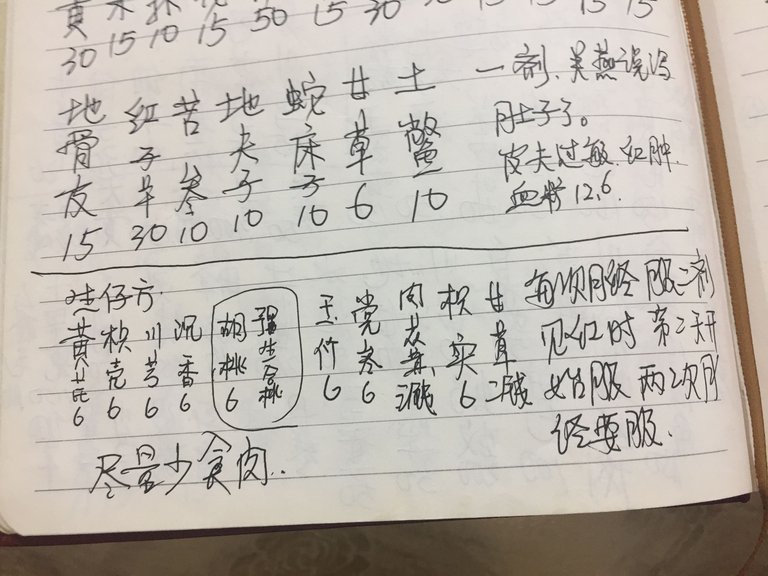 黄
30 15 10 15 50 15 30 15 15 15
地骨友 15
红子早 30
苦参 10
地夫子 10
蛇床子 10
甘草 6
土鳖 10
一剂.吴燕说泻
肚子了。
皮夫过敏.红肿.
12.6.
生仔方.
黄芪 6
枳壳 6
川芎 6
沉香 6
胡桃 6
玉竹 6
党参 6
肉苁蓉 二钱
枳实 6
甘草 二钱
每次月经服二剂
见红时第二天开
始服两三次月
经要服.
尽量少食肉..